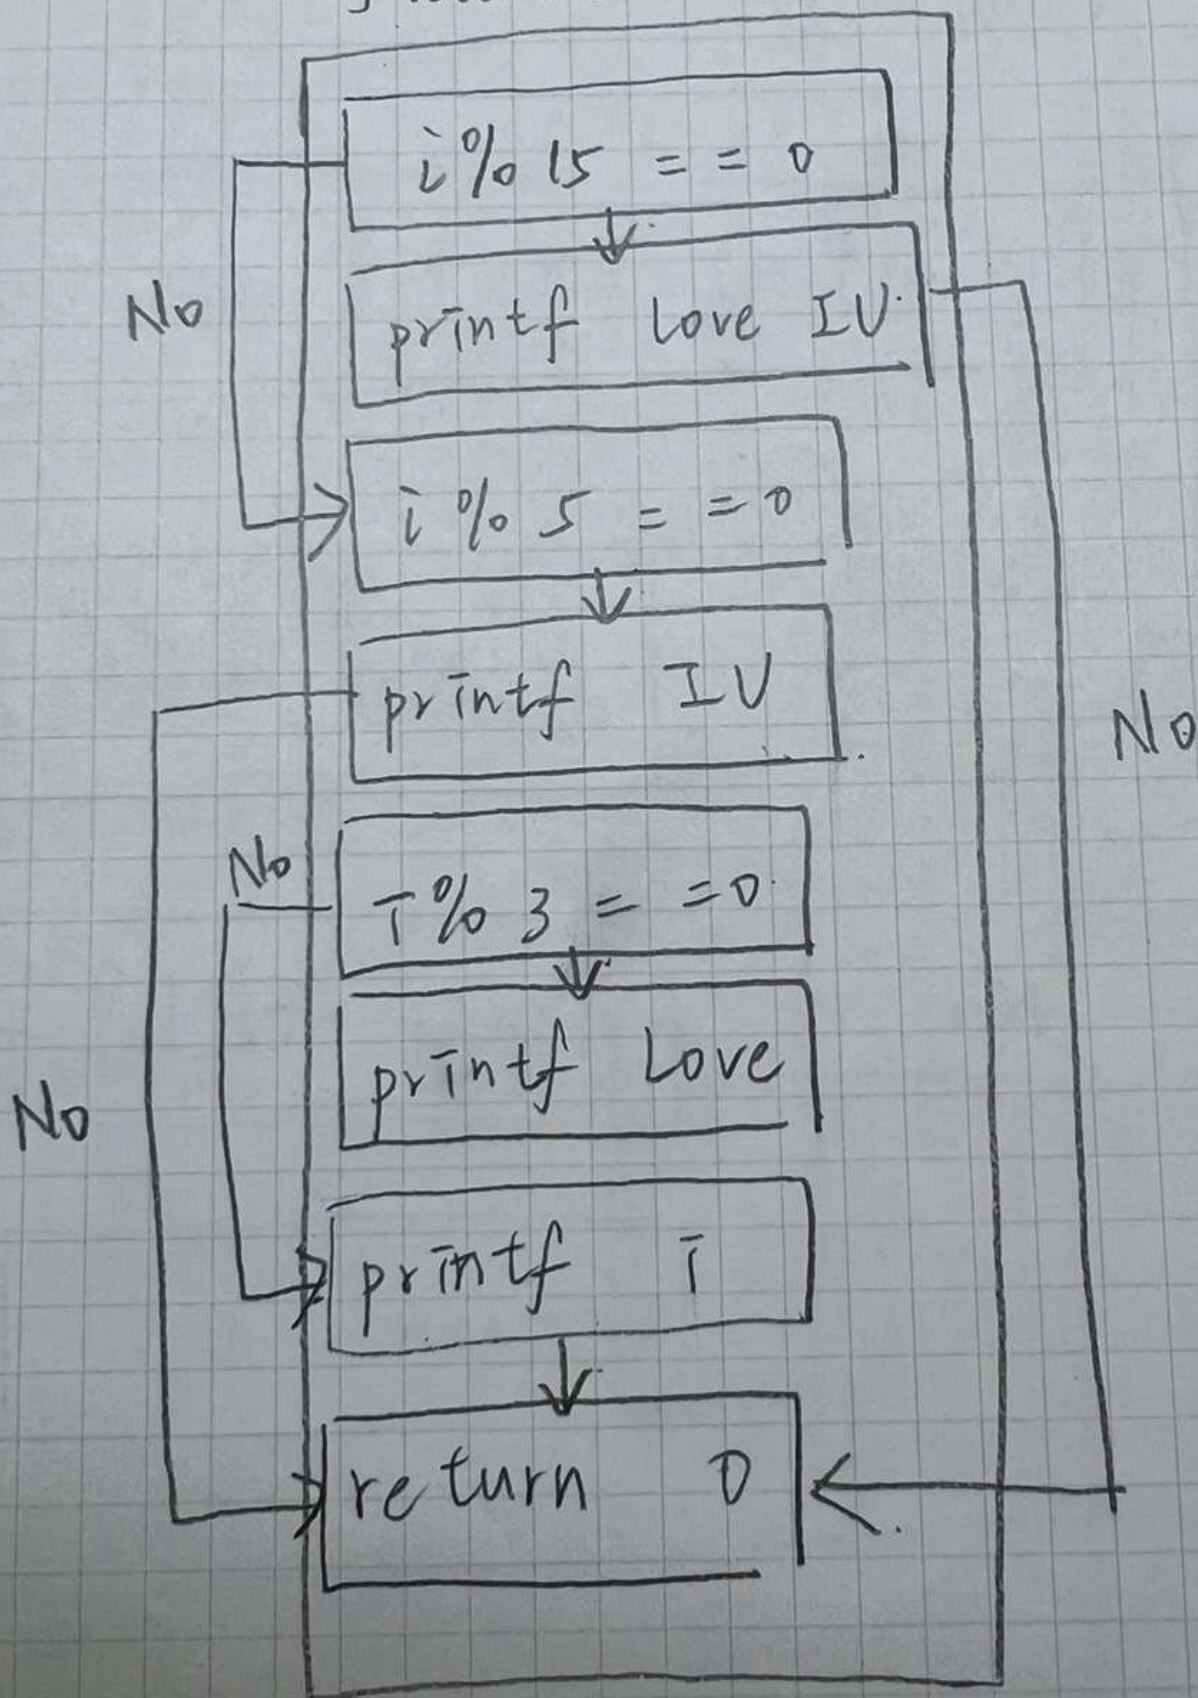 i % 15 = = 0
No
printf Love IU
i % 5 = = 0
printf IU
No
No
i % 3 = = 0
printf Love
No
printf i
return 0